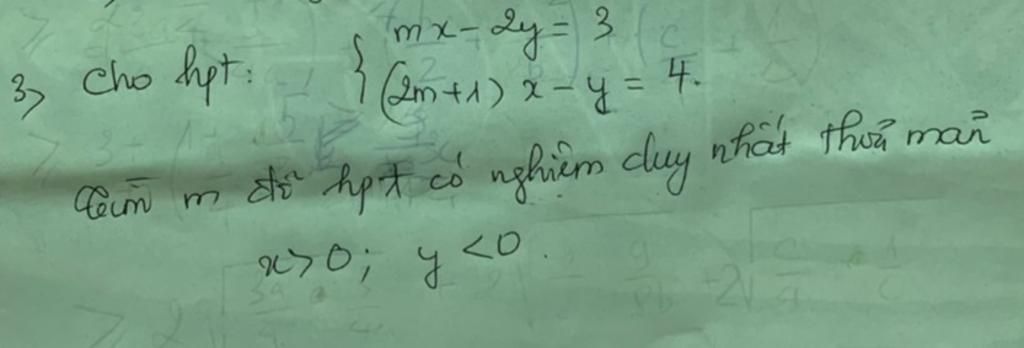 3) Cho hpt: { mx - 2y = 3
(2m+1) x - y = 4.
Tìm m để hpt có nghiệm duy nhất thoả mãn
x > 0; y < 0.